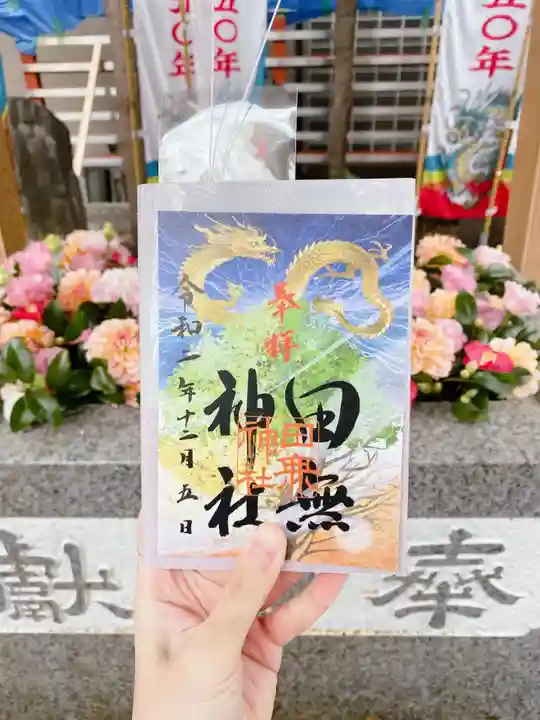 五〇年
五〇年
五〇年
奉拝
田無
神社
田無
神社
令和二年十二月五日
奉
献